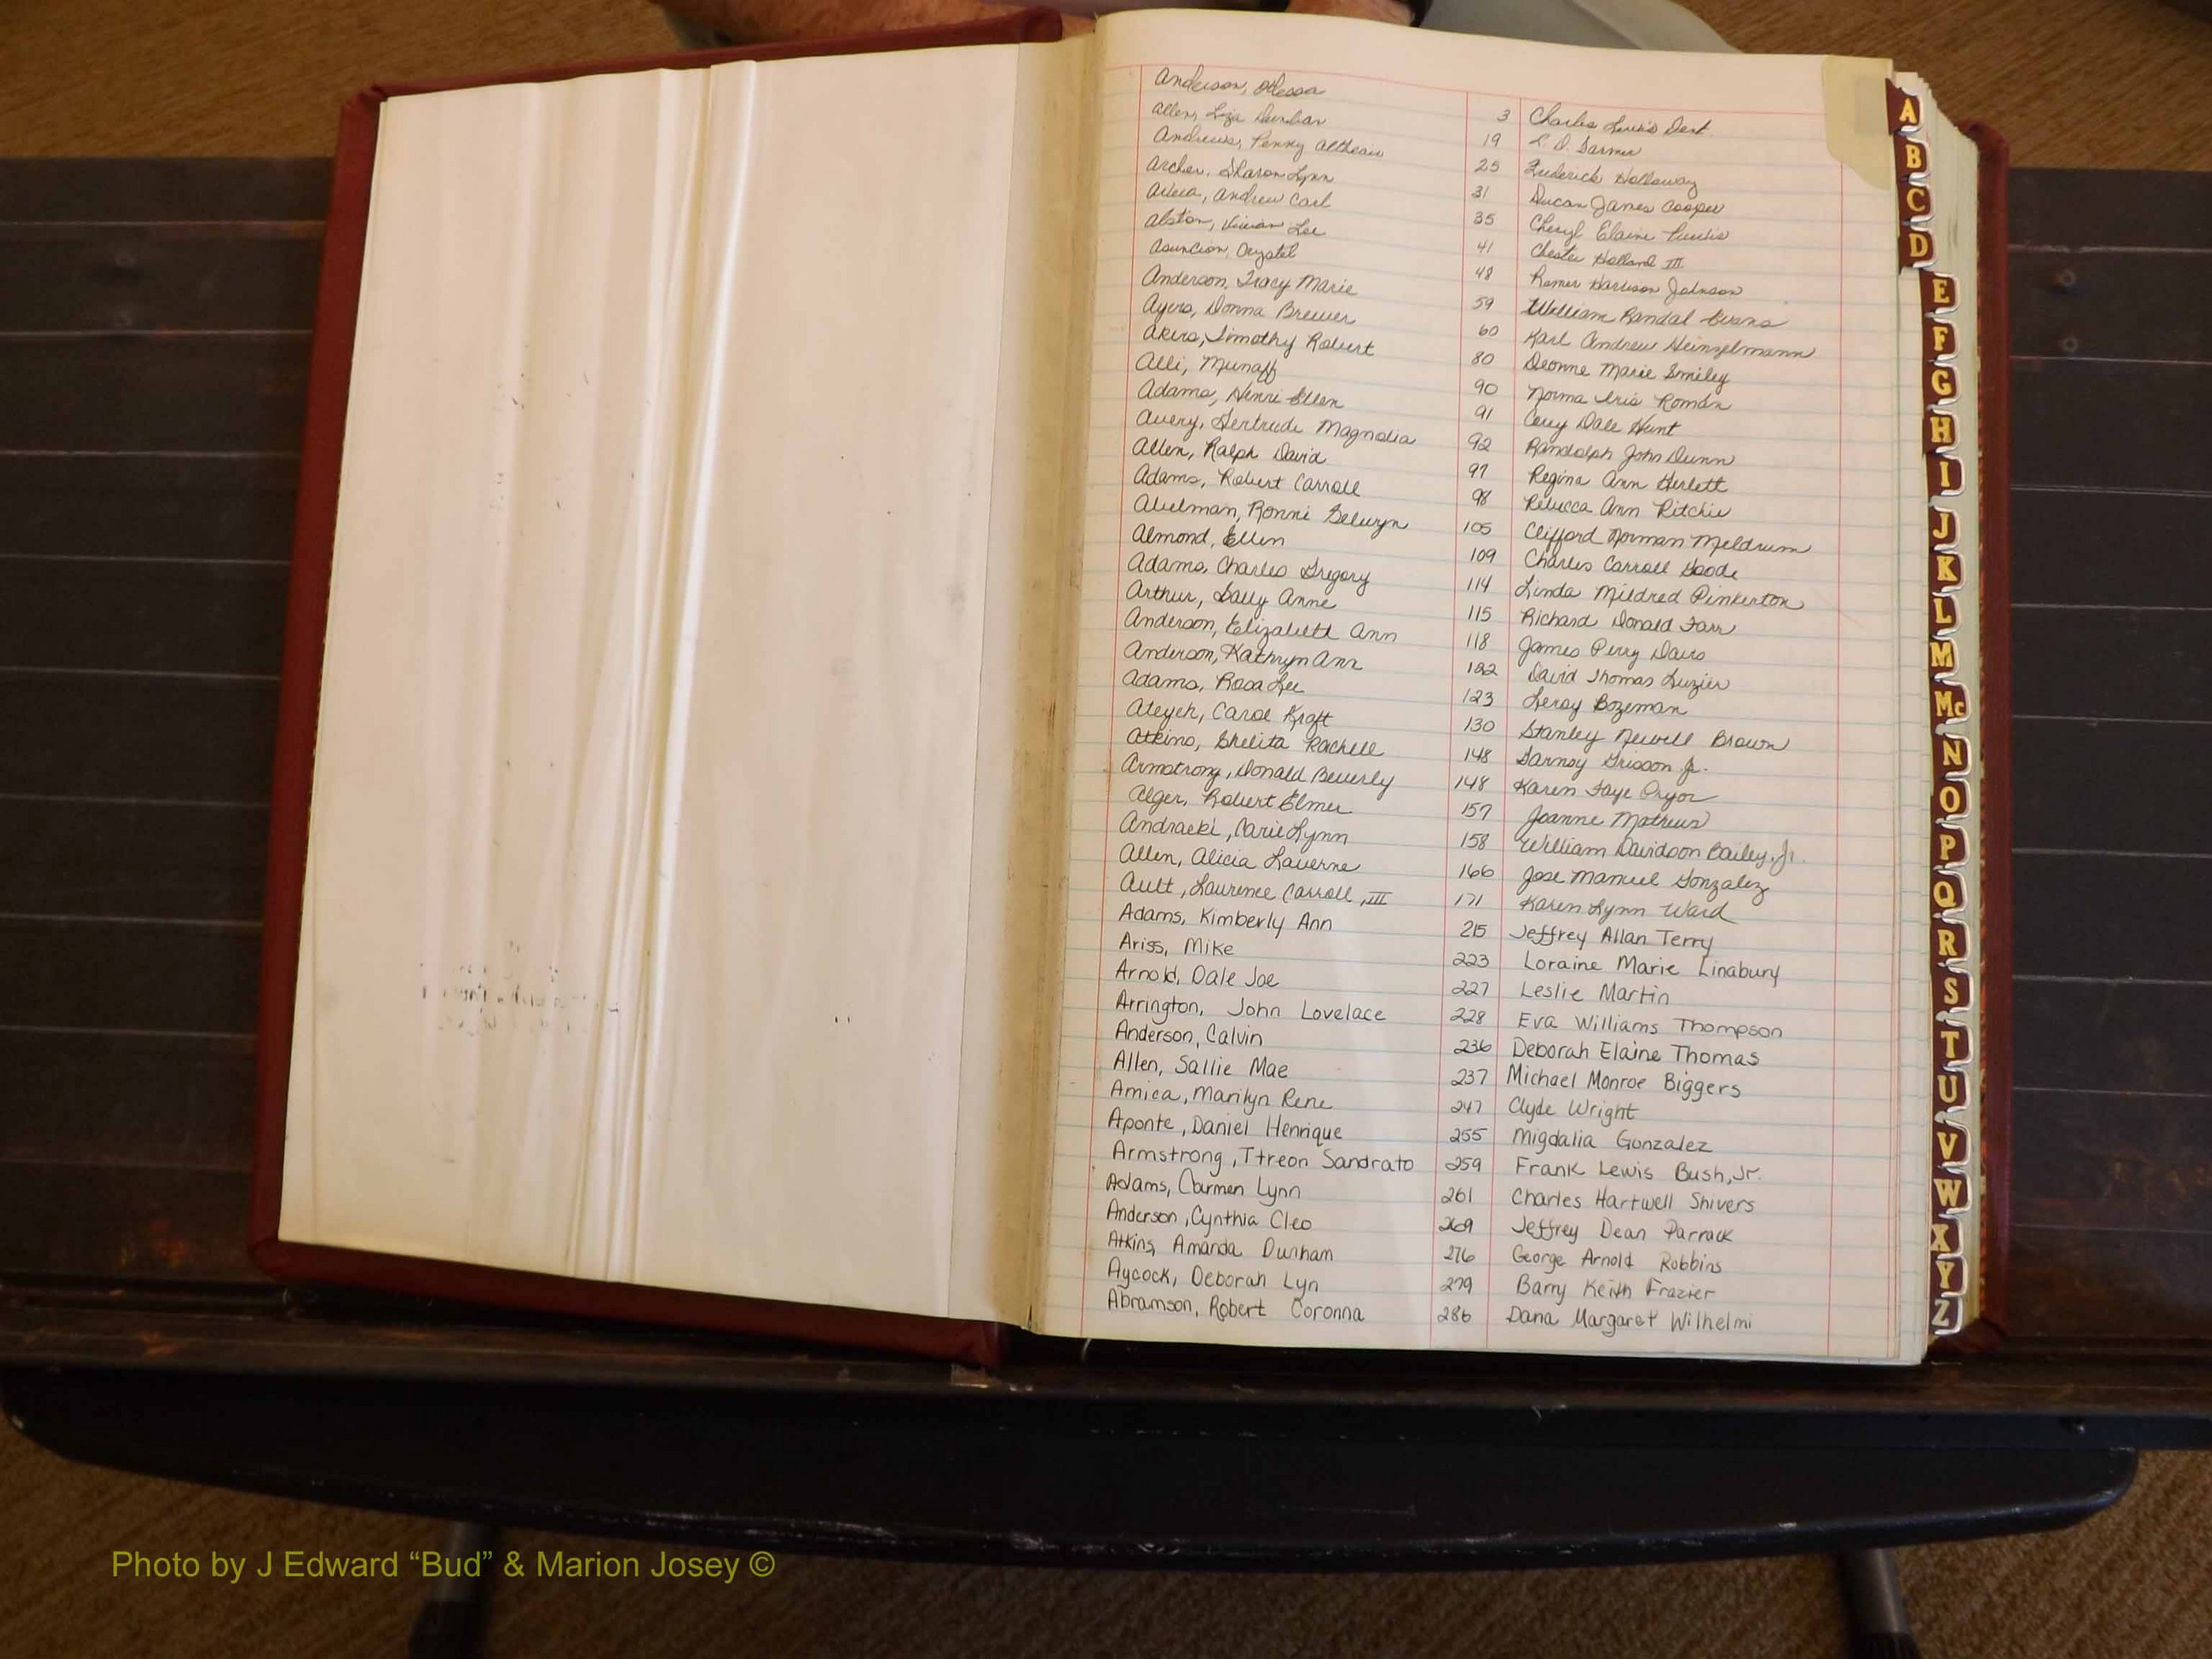 Anderson, Odessa 3 Charles Lewis Dent
Allen, Liza Dunbar 19 L. D. Farmer
Andrews, Penny 25 Frederick Holloway
Archer, Sharon Lynn 31 Ducan James Cooper
Andrew Carl 35 Cheryl Elaine
Alston, Vivian Lee 41 Chester Holland III
Asuncion, Crystal 48 Romer Harrison Johnson
Anderson, Tracy Marie 59 William Randal Evans
Ayers, Donna Brewer 60 Karl Andrew Heinzelmann
Akers, Timothy Robert 80 Deonne Marie Smiley
Alli, Munaff 90 Norma Iris Román
Adams, Henri Ellen 91 Cary Dale Hunt
Avery, Gertrude Magnolia 92 Randolph John Dunn
Allen, Ralph David 97 Regina Ann Herlett
Adams, Robert Carroll 98 Rebecca Ann Ritchie
Abelman, Ronni Selwyn 105 Clifford Norman Meldrum
Almond, Ellen 109 Charles Carroll Goode
Adams, Charles Gregory 114 Linda Mildred Pinkerton
Arthur, Sally Anne 115 Richard Donald Farr
Anderson, Elizabeth Ann 118 James Perry Davis
Anderson, Kathryn Ann 122 David Thomas Luzier
Adams, Rosa Lee 123 Leroy Bozeman
Ateyeh, Carol Kraft 130 Stanley Newell Brown
Atkins, Shelita Rachell 148 Grisson Jr.
Armstrong, Donald Beverly 148 Karen Faye Pryor
Alger, Robert Elmer 157 Joanne Mathews
Andracki, Carie Lynn 158 William Davidson Bailey, Jr.
Allen, Alicia Laverne 166 Jose Manuel Gonzalez
Ault, Laurence Carroll, III 171 Karen Lynn Ward
Adams, Kimberly Ann 215 Jeffrey Allan Terry
Ariss, Mike 223 Loraine Marie Linabury
Arnold, Dale Joe 227 Leslie Martin
Arrington, John Lovelace 228 Eva Williams Thompson
Anderson, Calvin 236 Deborah Elaine Thomas
Allen, Sallie Mae 237 Michael Monroe Biggers
Amica, Marilyn Rene 247 Clyde Wright
Aponte, Daniel Henrique 255 Migdalia Gonzalez
Armstrong, Ttreon Sandrato 259 Frank Lewis Bush, Jr.
Adams, Carmen Lynn 261 Charles Hartwell Shivers
Anderson, Cynthia Cleo 269 Jeffrey Dean Parrack
Atkins, Amanda Durham 276 George Arnold Robbins
Aycock, Deborah Lyn 279 Barry Keith Frazier
Abramson, Robert Coronna 286 Dana Margaret Wilhelmi
A
B
C
D
E
F
G
H
I
J
K
L
M
Mc
N
O
P
Q
R
S
T
U
V
W
X
Y
Z
Photo by J Edward “Bud” & Marion Josey ©